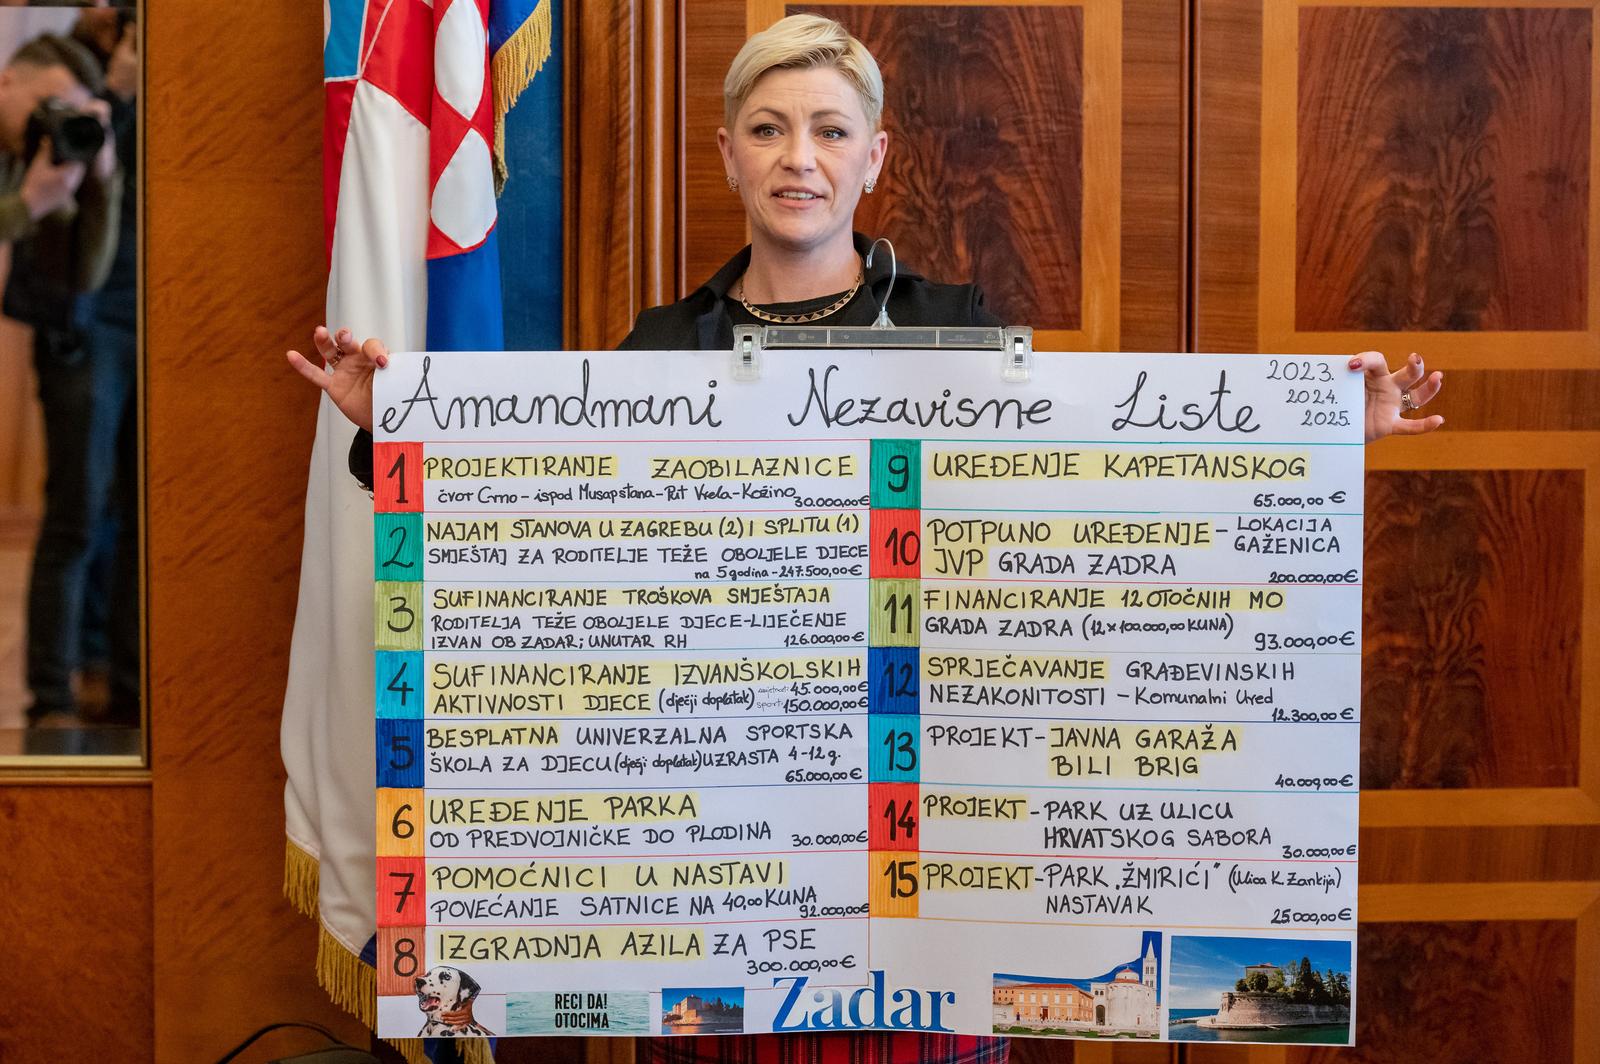 Amandmani Nezavisne Liste
2023.
2024.
2025.
1 PROJEKTIRANJE ZAOBILAZNICE
čvor Crno - ispod Musapstana - Put Vrela - Kožino 30.000,00€
2 NAJAM STANOVA U ZAGREBU (2) I SPLITU (1)
SMJEŠTAJ ZA RODITELJE TEŽE OBOLJELE DJECE
na 5 godina - 247.500,00€
3 SUFINANCIRANJE TROŠKOVA SMJEŠTAJA
RODITELJA TEŽE OBOLJELE DJECE - LIJEČENJE
IZVAN OB ZADAR; UNUTAR RH 126.000,00€
4 SUFINANCIRANJE IZVANŠKOLSKIH
AKTIVNOSTI DJECE (dječji doplatak) umjetnost: 45.000,00€
sport: 150.000,00€
5 BESPLATNA UNIVERZALNA SPORTSKA
ŠKOLA ZA DJECU (dječji doplatak) UZRASTA 4-12 g.
65.000,00€
6 UREĐENJE PARKA
OD PREDVOJNIČKE DO PLODINA 30.000,00€
7 POMOĆNICI U NASTAVI
POVEĆANJE SATNICE NA 40,00 KUNA
92.000,00€
8 IZGRADNJA AZILA ZA PSE
300.000,00€
9 UREĐENJE KAPETANSKOG
65.000,00 €
10 POTPUNO UREĐENJE - LOKACIJA
GAŽENICA
JVP GRADA ZADRA
200.000,00€
11 FINANCIRANJE 12 OTOČNIH MO
GRADA ZADRA (12x100.000,00 KUNA)
93.000,00€
12 SPRJEČAVANJE GRAĐEVINSKIH
NEZAKONITOSTI - Komunalni Ured
12.300,00€
13 PROJEKT - JAVNA GARAŽA
BILI BRIG
40.000,00€
14 PROJEKT - PARK UZ ULICU
HRVATSKOG SABORA
30.000,00€
15 PROJEKT - PARK „ŽMIRIĆI" (Ulica K. Zankija)
NASTAVAK
25.000,00€
RECI DA!
OTOCIMA
Zadar